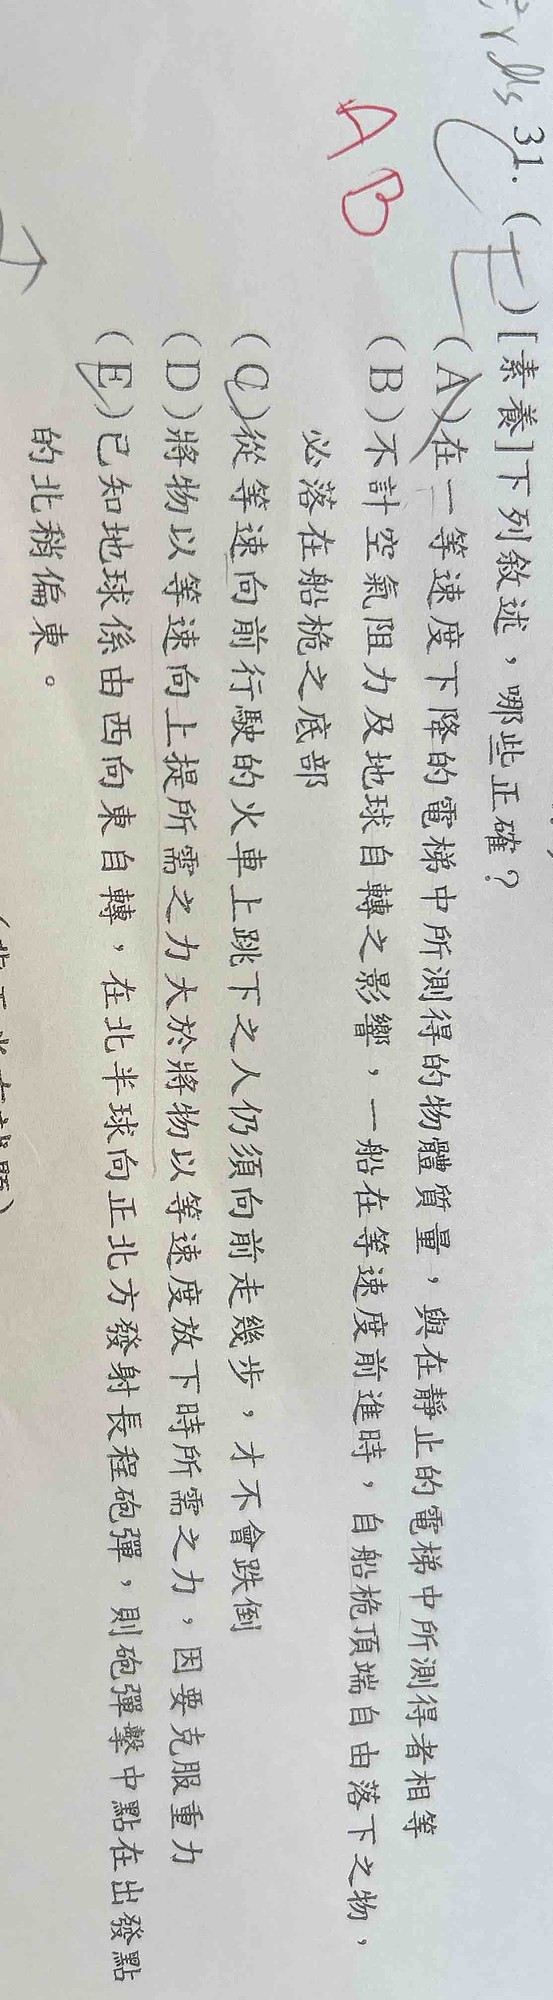 31. ( )[素養]下列敘述，哪些正確？
AB
(A)在一等速度下降的電梯中所測得的物體質量，與在靜止的電梯中所測得者相等
(B)不計空氣阻力及地球自轉之影響，一船在等速度前進時，自船桅頂端自由落下之物，
必落在船桅之底部
(C)從等速向前行駛的火車上跳下之人仍須向前走幾步，才不會跌倒
(D)將物以等速向上提所需之力大於將物以等速度放下時所需之力，因要克服重力
(E)已知地球係由西向東自轉，在北半球向正北方發射長程砲彈，則砲彈擊中點在出發點
的北稍偏東。